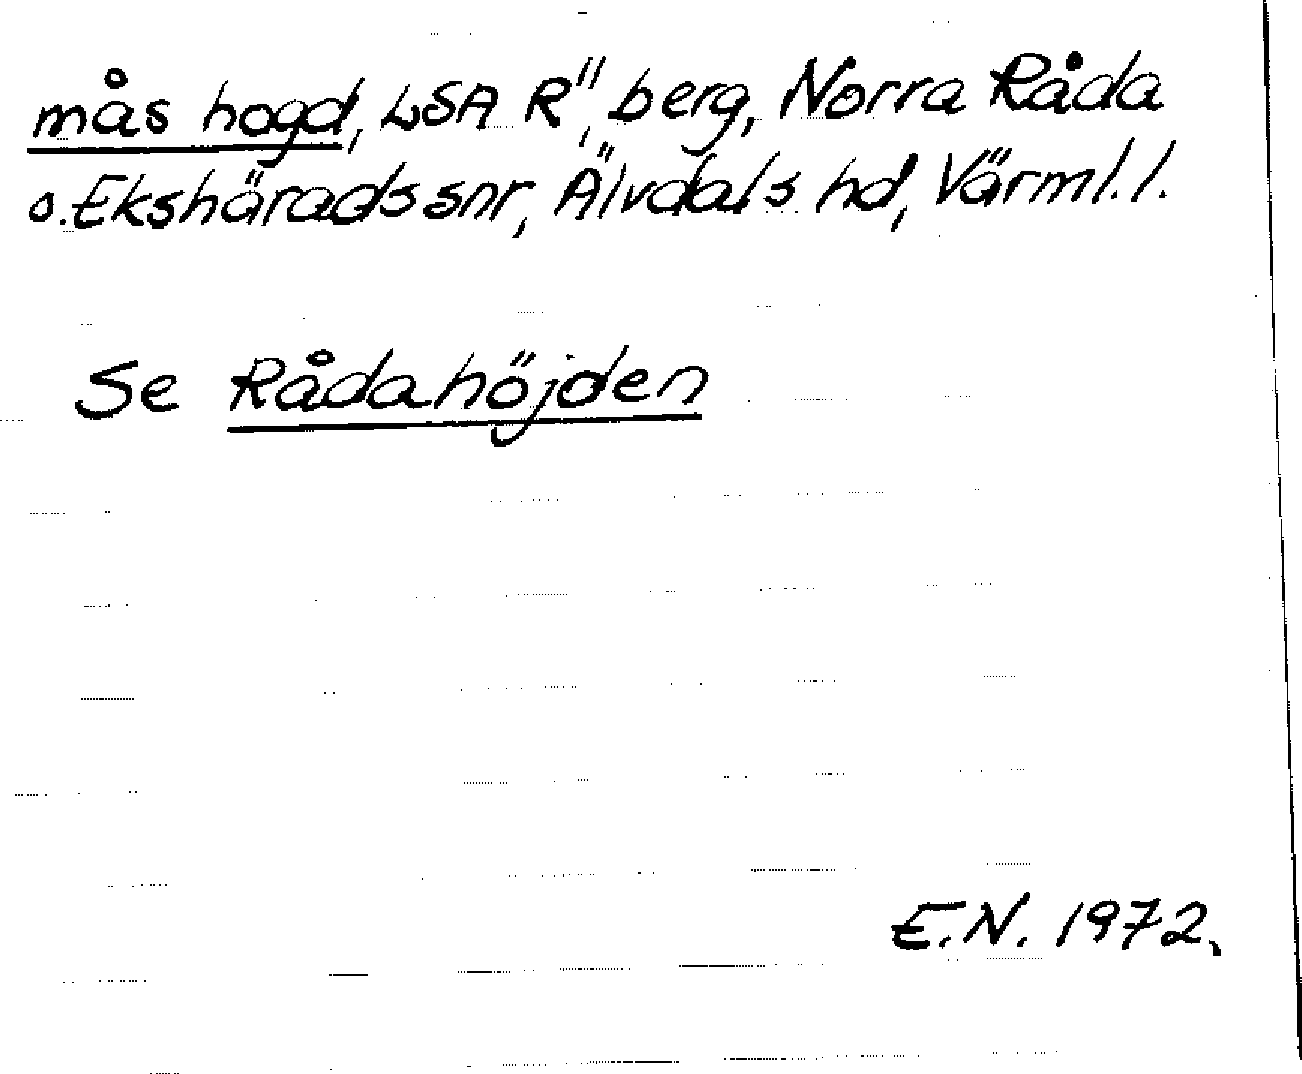 mås hogd, LSA R", berg, Norra Råda
o. Ekshärads snr, Älvdals hd, Värml. l.
Se Rådahöjden
E.N. 1972.